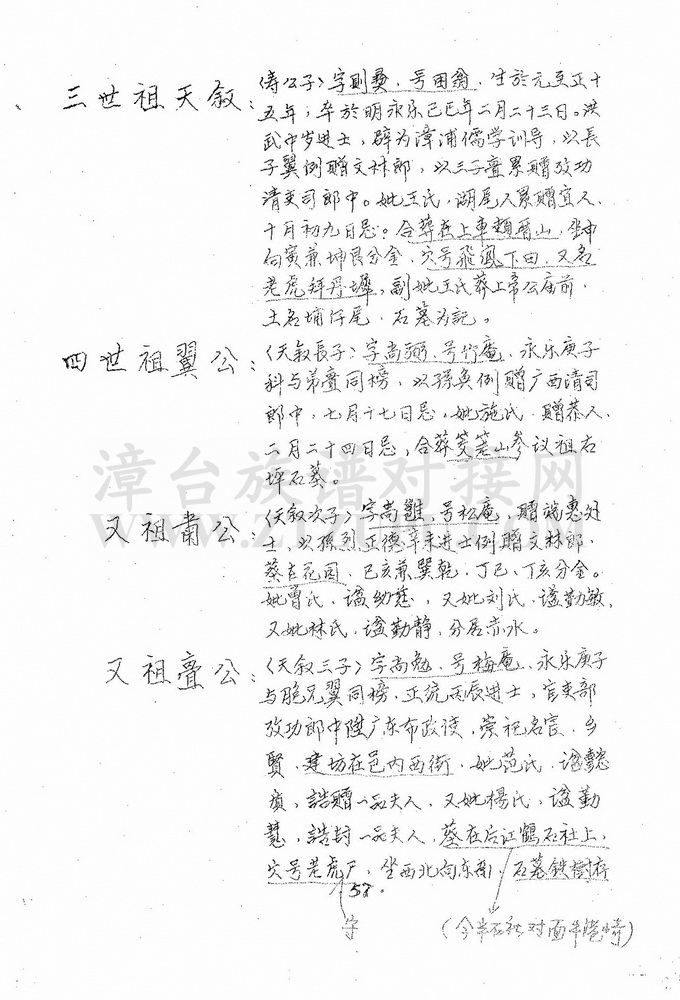 三世祖天叙：〈寿公子〉字则彝，号田翁，生於元至正十
五年，卒於明永乐己巳年二月二十三日。洪
武中岁进士，辟为漳浦儒学训导，以長
子翼例赠文林郎，以三子亹累赠攷功
清吏司郎中。妣王氏，湖尾人累赠宜人，
十月初九日忌。合葬在上車 山，坐申
向寅兼坤艮分金，穴号飛鳳下田，又名
老虎拜丹墀，副妣王氏葬上帝公庙前，
土名埔仔尾，石墓为記。
四世祖翼公：〈天叙長子〉字尚弼，号竹庵，永乐庚子
科与弟亹同榜，以孫奂例赠广西清司
郎中，七月十七日忌，妣施氏，赠恭人，
二月二十四日忌，合葬 山参议祖右
坪石墓。
又祖肅公：〈天叙次子〉字尚 ，号松庵，赠 惠处
士，以孫烈正德辛未进士例赠文林郎，
葬在花园，己亥兼巽乾，丁巳、丁亥分金。
妣曾氏，谥幼慈，又妣刘氏，谥勤敏，
又妣林氏，谥勤静，分居赤水。
又祖亹公：〈天叙三子〉字尚勉，号梅庵，永乐庚子
与胞兄翼同榜，正统丙辰进士，官吏部
攷功郎中陞广东布政使，崇祀名宦，乡
賢，建坊在邑内西街，妣范氏，谥懿
贞，誥赠一品夫人，又妣楊氏，谥勤
慧，誥封一品夫人，葬在后江鶴石社上，
穴号老虎 ，坐西北向东南，石墓鉄樹存
58.
字
(今 石社对面牛 崎)
漳台族谱对接网